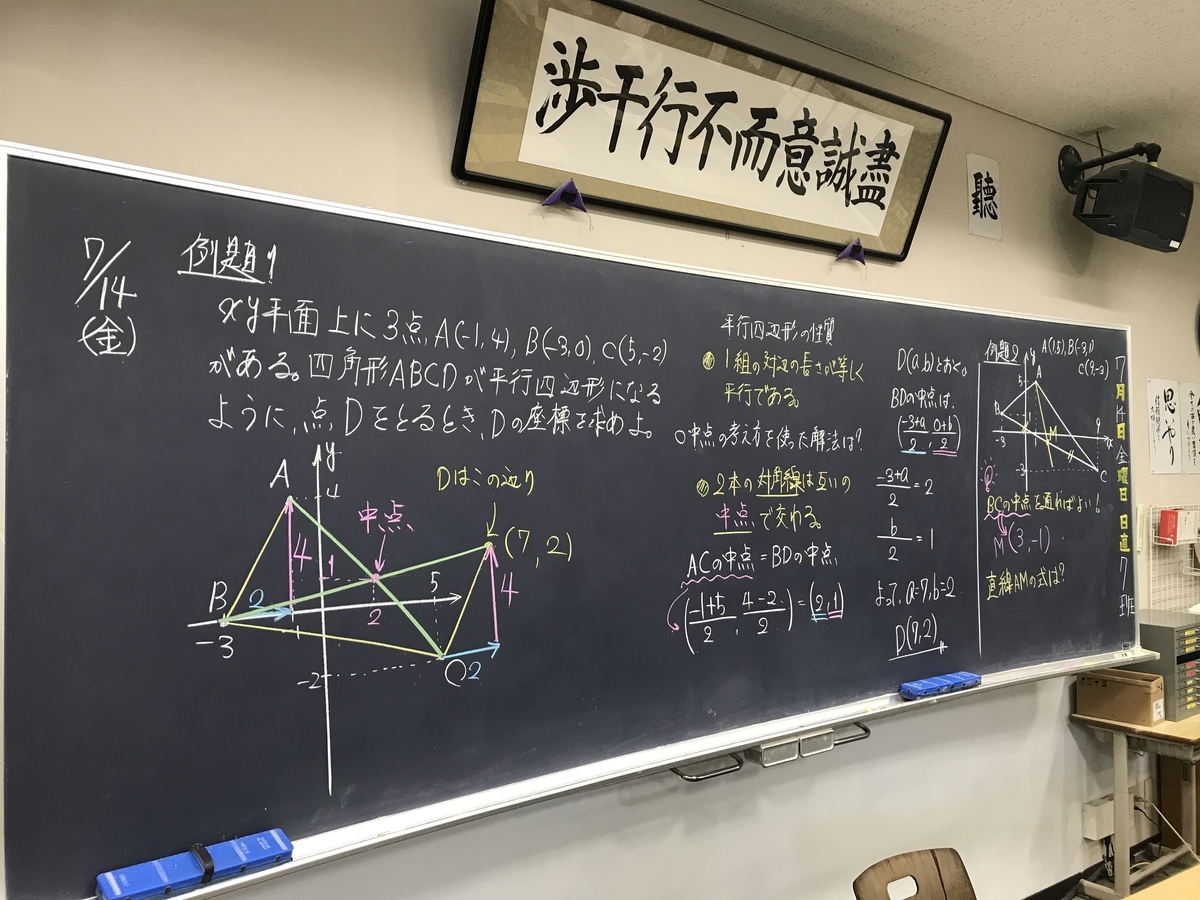 渉干行不而意誠盡
聽
7/14
(金)
例題1
xy平面上に3点A(-1,4), B(-3,0), C(5,-2)
がある。四角形ABCDが平行四辺形になる
ように、点Dをとるとき、Dの座標を求めよ。
y
A
4
中点
Dはこの辺り
(7,2)
4
1
B
2
-3
-1
2
5
4
-2
C
2
平行四辺形の性質
1組の対辺の長さが等しく
平行である。
○中点の考え方を使った解法は?
2本の対角線は互いの
中点で交わる
ACの中点=BDの中点
(-1+5/2, 4-2/2)=(2,1)
D(a,b)とおく。
BDの中点は、
(-3+a/2, 0+b/2)
-3+a/2=2
b/2=1
よって、a=7,b=2
D(7,2)
例題2
A(1,5), B(-3,1)
C(9,-3)
y
5
A
B
1
-3
M
9
x
-3
C
BCの中点を通ればよい!
M(3,-1)
直線AMの式は?
7月14日金曜日 日直 7班
思いやり